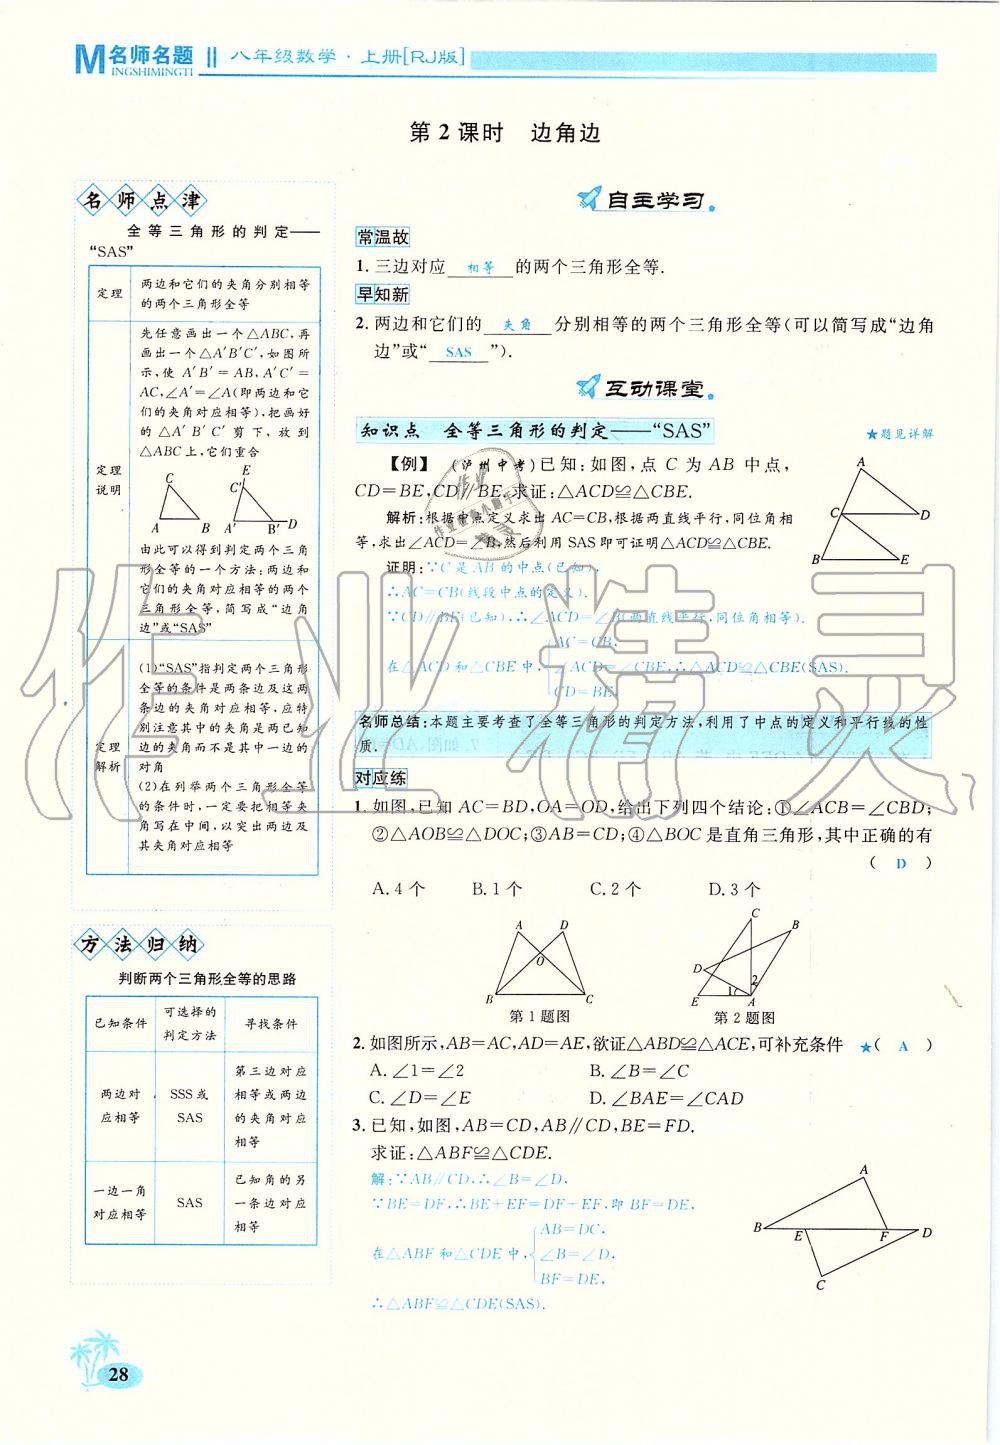 M名师名题 八年级数学·上册[RJ版]
INGSHIMINGTI
第2课时 边角边
名师点津
全等三角形的判定——
“SAS”
定理
两边和它们的夹角分别相等
的两个三角形全等
定理
说明
先任意画出一个△ABC,再
画出一个△A′B′C′,如图所
示,使 A′B′=AB,A′C′=
AC,∠A′=∠A(即两边和它
们的夹角对应相等),把画好
的△A′B′C′剪下,放到
△ABC上,它们重合
C
A
B
E
C′
A′
B′
D
由此可以得到判定两个三角
形全等的一个方法:两边和
它们的夹角对应相等的两个
三角形全等,简写成“边角
边”或“SAS”
定理
解析
(1)“SAS”指判定两个三角形
全等的条件是两条边及这两
条边的夹角对应相等,应特
别注意其中的夹角是两已知
边的夹角而不是其中一边的
对角
(2)在列举两个三角形全等
的条件时,一定要把相等夹
角写在中间,以突出两边及
其夹角对应相等
方法归纳
判断两个三角形全等的思路
已知条件
可选择的
判定方法
寻找条件
两边对
应相等
SSS或
SAS
第三边对应
相等或两边
的夹角对应
相等
一边一角
对应相等
SAS
已知角的另
一条边对应
相等
28
自主学习
常温故
1. 三边对应 相等 的两个三角形全等.
早知新
2. 两边和它们的 夹角 分别相等的两个三角形全等(可以简写成“边角
边”或“ SAS ”).
互动课堂
知识点 全等三角形的判定——“SAS”
★题见详解
【例】 (泸州中考)已知:如图,点C为AB中点,
CD=BE,CD∥BE.求证:△ACD≌△CBE.
解析:根据中点定义求出AC=CB,根据两直线平行,同位角相
等,求出∠ACD=∠B,然后利用SAS即可证明△ACD≌△CBE.
A
C
D
B
E
证明:∵C是AB的中点(已知),
∴AC=CB(线段中点的定义).
∵CD∥BE(已知),∴∠ACD=∠B(两直线平行,同位角相等).
在△ACD和△CBE中,
AC=CB,
∠ACD=∠CBE,
CD=BE,
∴△ACD≌△CBE(SAS).
名师总结:本题主要考查了全等三角形的判定方法,利用了中点的定义和平行线的性
质.
对应练
1. 如图,已知AC=BD,OA=OD,给出下列四个结论:①∠ACB=∠CBD;
②△AOB≌△DOC;③AB=CD;④△BOC是直角三角形,其中正确的有
( D )
A. 4个 B. 1个 C. 2个 D. 3个
A
D
O
B
C
第1题图
C
B
D
2
1
E
A
第2题图
2. 如图所示,AB=AC,AD=AE,欲证△ABD≌△ACE,可补充条件 ★( A )
A. ∠1=∠2 B. ∠B=∠C
C. ∠D=∠E D. ∠BAE=∠CAD
3. 已知,如图,AB=CD,AB∥CD,BE=FD.
求证:△ABF≌△CDE.
解:∵AB∥CD,∴∠B=∠D,
∵BE=DF,∴BE+EF=DF+EF,即BF=DE,
在△ABF和△CDE中,
AB=DC,
∠B=∠D,
BF=DE,
∴△ABF≌△CDE(SAS).
A
B
E
F
D
C
作业精灵